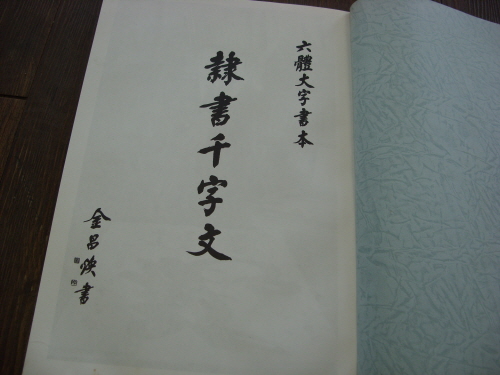 六體大字書本
隷書千字文
金昌煥書